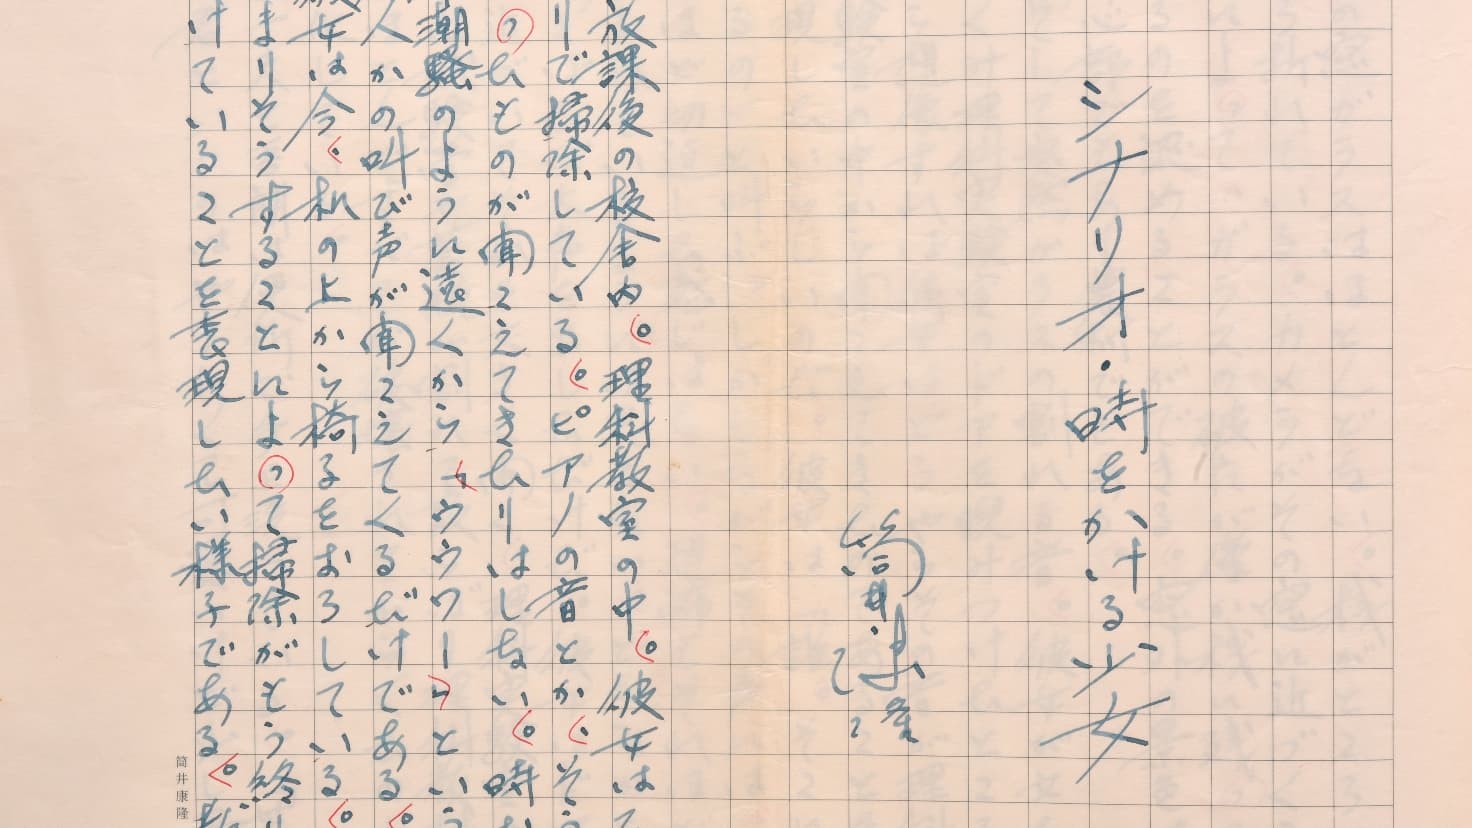 シナリオ・時をかける少女
筒井康隆
放課後の校舎内。理科教室の中。彼女は
りで掃除している。ピアノの音とか、そう
っちものが聞こえてきちりはしない。時
潮騒のように遠くから「ウウウワー」という
人かの叫び声が聞こえてくるだけである。
女は今、机の上から椅子をおろしている。
まりそうすることによって掃除がもう終り
けていることを表現しちい様子である。
筒井康隆